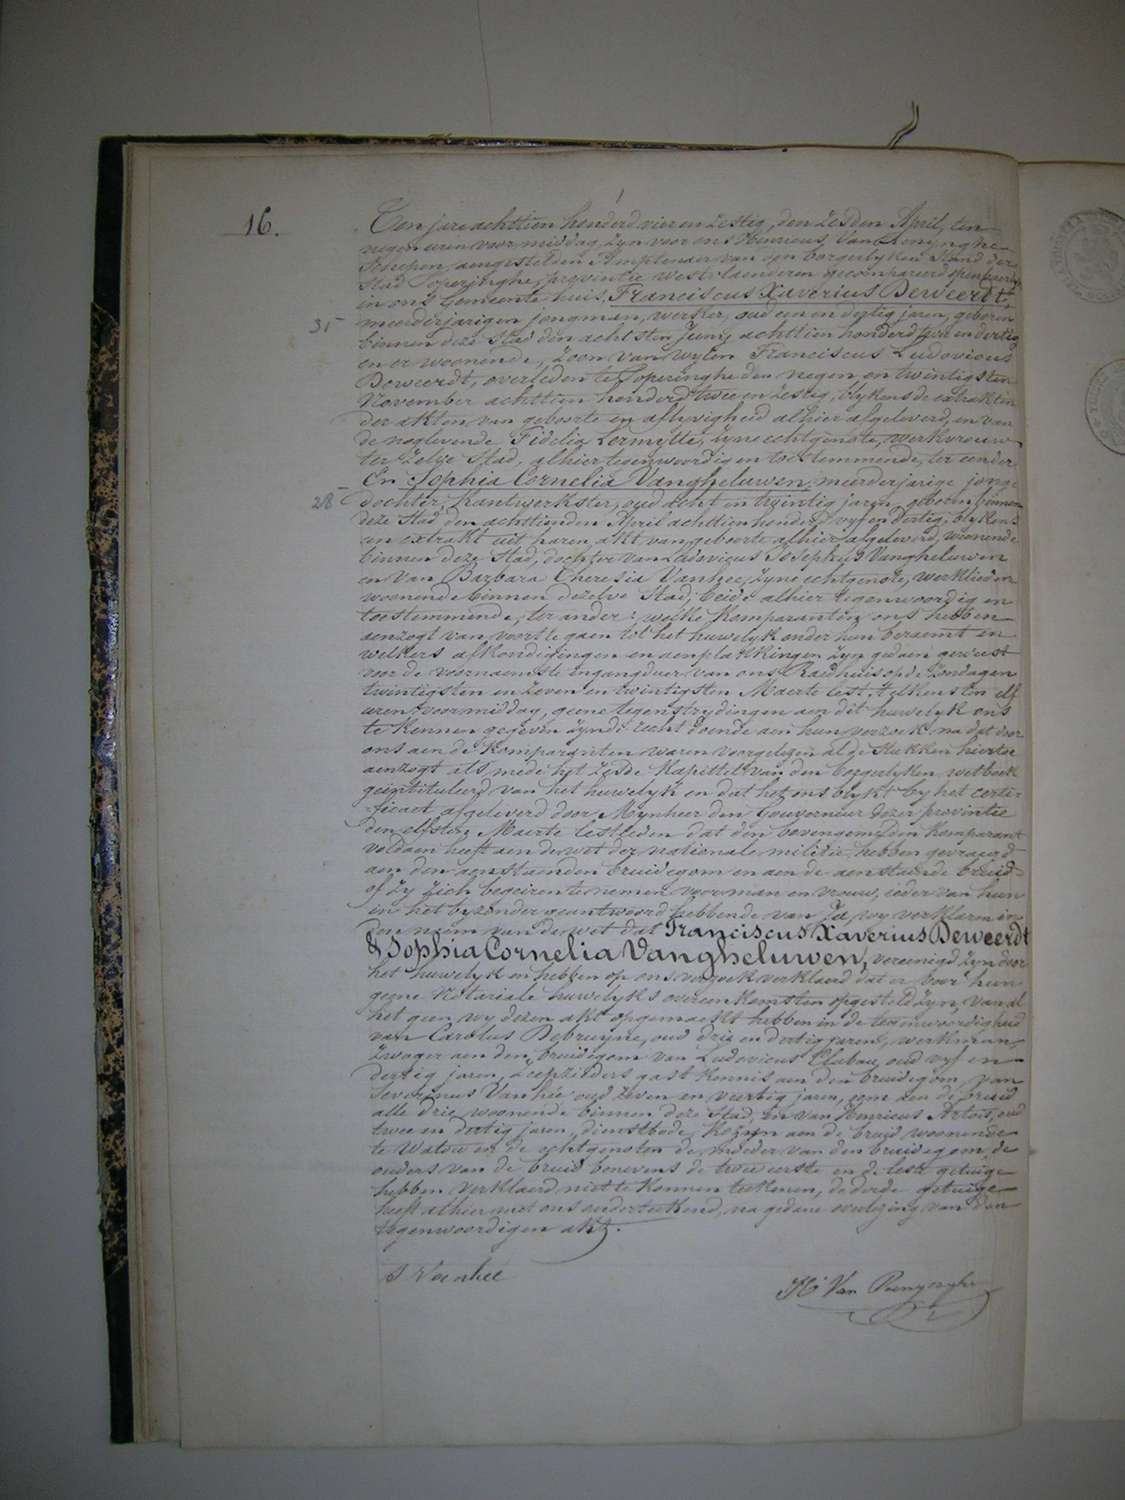 16.
Ten jare achttien honderd vier en zestig, den zesden April, ten
negen uren voormiddag zyn voor ons Henricus Van Renynghe
Schepen, aengestelden Amptenaer van den borgerlyken Stand der
Stad Poperinghe, provintie Westvlaenderen gecompareerd openbaerlyk
in ons Gemeente huis, Franciscus Xaverius Deweerdt,
31
meerderjarigen jongman, werker, oud een en dertig jaren, geboren
binnen deze Stad den achtsten Juny achttien honderd twee en dertig
en er woonende, zoon van wylen Franciscus Ludovicus
Deweerdt, overleden te Poperinghe den negen en twintigsten
November achttien honderd twee en zestig, blykens de extrakten
der akten van geboorte en aflyvigheid alhier afgeleverd, en van
de noglevende Fidelia Lermytte, zyne echtgenote, werkvrouw
ter zelve Stad, alhier tegenwoordig en toestemmende, ter eender
En Sophia Cornelia Vangheluwen, meerderjarige jonge
28
dochter, kantwerkster, oud acht en twintig jaren, geboren binnen
deze Stad den achttienden April achttien honderd vyf en dertig, blykens
een extrakt uit haren akt van geboorte alhier afgeleverd, woonende
binnen deze Stad, dochter van Ludovicus Josephus Vangheluwen
en van Barbara Theresia Vanhee, zyne echtgenote, werklieden
woonende binnen dezelve Stad, beide alhier tegenwoordig en
toestemmende, ter ander; welke komparanten ons hebben
aenzogt van voort te gaen tot het huwelyk onder hun beraemt en
welkers afkondigingen en aenplakkingen zyn gedaen geweest
voor de voornaemste ingangdeur van ons Raedhuis op de Zondagen
twintigsten en zeven en twintigsten Maerte lest, telkens ten elf
uren voormiddag, geene tegenstrydingen aen dit huwelyk ons
te kennen gegeven zynde recht doende aen hun verzoek na dat door
ons aen de komparanten waren voorgelezen al de stukken hiertoe
aenzogt als mede het zesde kapittel van den borgerlyken wetboek
geintituleerd van het huwelyk en dat het ons blykt by het certi-
ficaet afgeleverd door Mynheer den Gouverneur dezer provintie
den elfsten Maerte lestleden dat den bovengemelden komparant
voldaen heeft aen de wet der nationale militie, hebben gevraegd
aen den aenstaenden bruidegom en aen de aenstaende bruid
of zy zich begeiren te nemen voor man en vrouw, ieder van hun
in het byzonder geantwoord hebbende van Ja, wy verklaren in
den naem van de wet dat Franciscus Xaverius Deweerdt
& Sophia Cornelia Vangheluwen, vereenigd zyn door
het huwelyk en hebben op ons verzoek verklaerd dat er voor hun
geene Notariale huwelyks overeenkomsten opgesteld zyn, van al
het geen wy dezen akt opgemaekt hebben in de tegenwoordigheid
van Carolus Debruyne, oud drie en dertig jaren, werkman,
zwager aen den bruidegom van Ludovicus Clabau, oud vyf en
dertig jaren, zeepzieders gast kennis aen den bruidegom, van
Severinus Vanhée oud zeven en veertig jaren, oom aen de bruid
alle drie woonende binnen deze Stad, en van Henricus Artois, oud
twee en dertig jaren, dienstbode, kozyn aen de bruid woonende
te Watou en de echtgenoten de moeder van den bruidegom, de
ouders van de bruid benevens de twee eerste en de leste getuige
hebben verklaerd niet te konnen teekenen, de derde getuige
heeft alhier met ons onderteekend, na gedane overlezing van den
tegenwoordigen akt.
S Vanhee
H. Van Renynghe